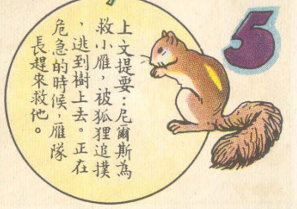 5
上文提要：尼爾斯為
救小雁，被狐狸追撲
，逃到樹上去。正在
危急的時候，雁隊
長趕來救他。